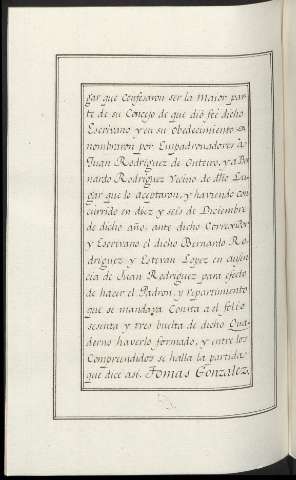 gar que Confesaron ser la Maior par-
te de su Concejo de que dió feé dicho
Escrivano y en su obedecimiento
nombraron por Empadronadores a
Juan Rodriguez de Outeiro, y a Ber
nardo Rodriguez Vecino de dho Lu-
gar que lo aceptaron, y haviendo con
currido en diez y seis de Diciembre
de dicho año, ante dicho Corregidor
y Escrivano el dicho Bernardo Ro-
driguez y Estevan Lopez en ausen
cia de Juan Rodriguez para efecto
de hacer el Padron, y repartimiento
que se mandava Consta al folio
sesenta y tres buelta de dicho Qua-
derno haverlo formado, y entre los
Comprendidos se halla la partida
que dice asi. Tomas Gonzalez,